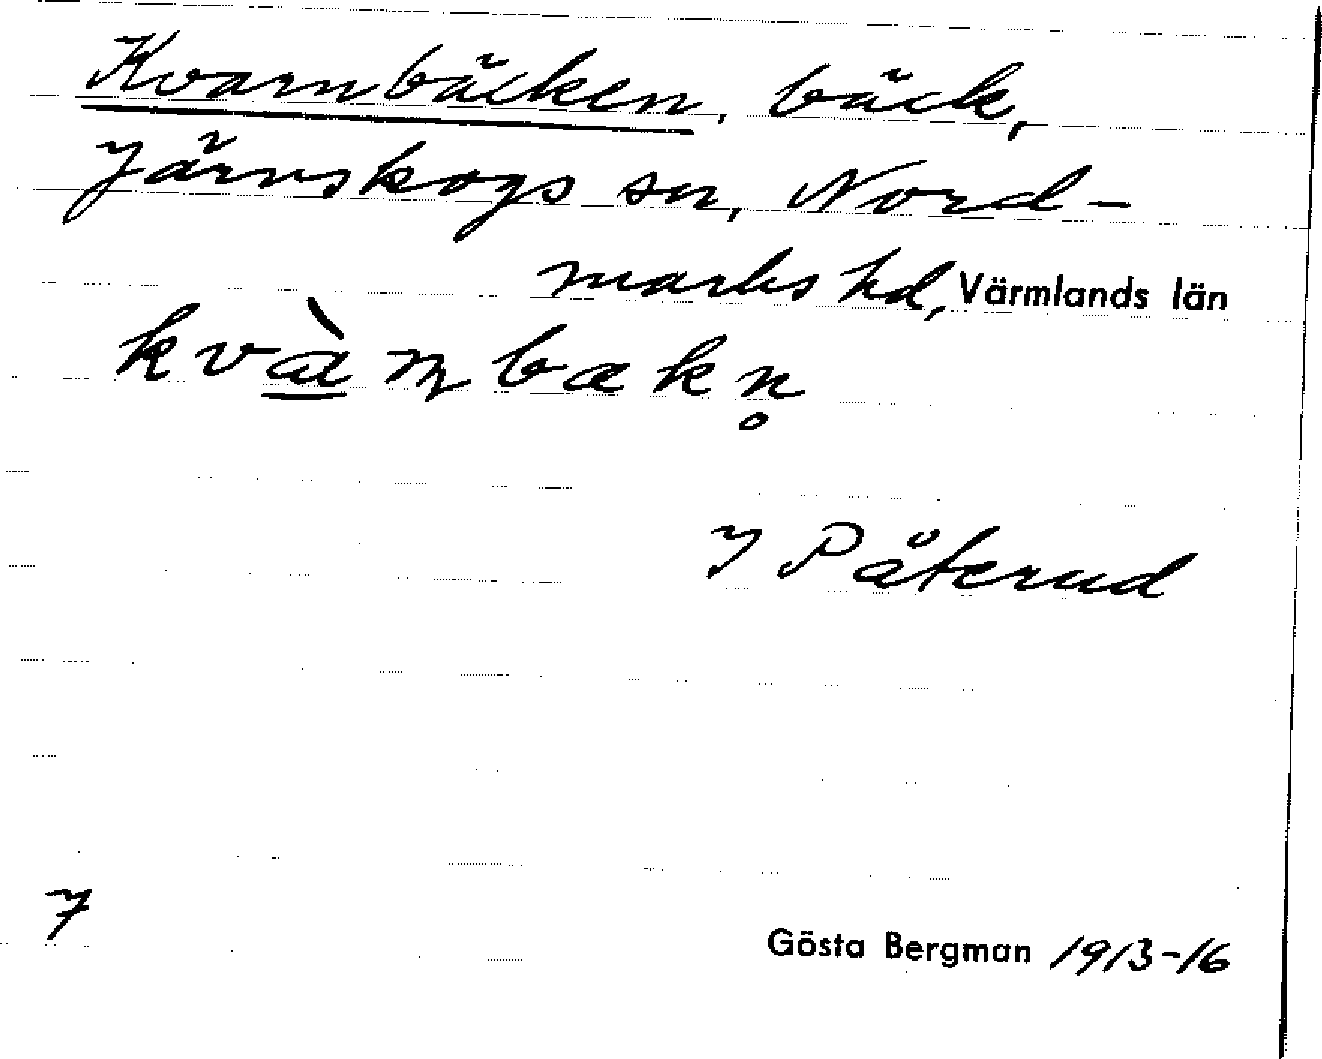 Kvarnbäcken, bäck,
Järnskogs sn, Nord-
marks hd, Värmlands län
kvæ̀ɳbækn̥
I Påterud
7
Gösta Bergman 1913-16